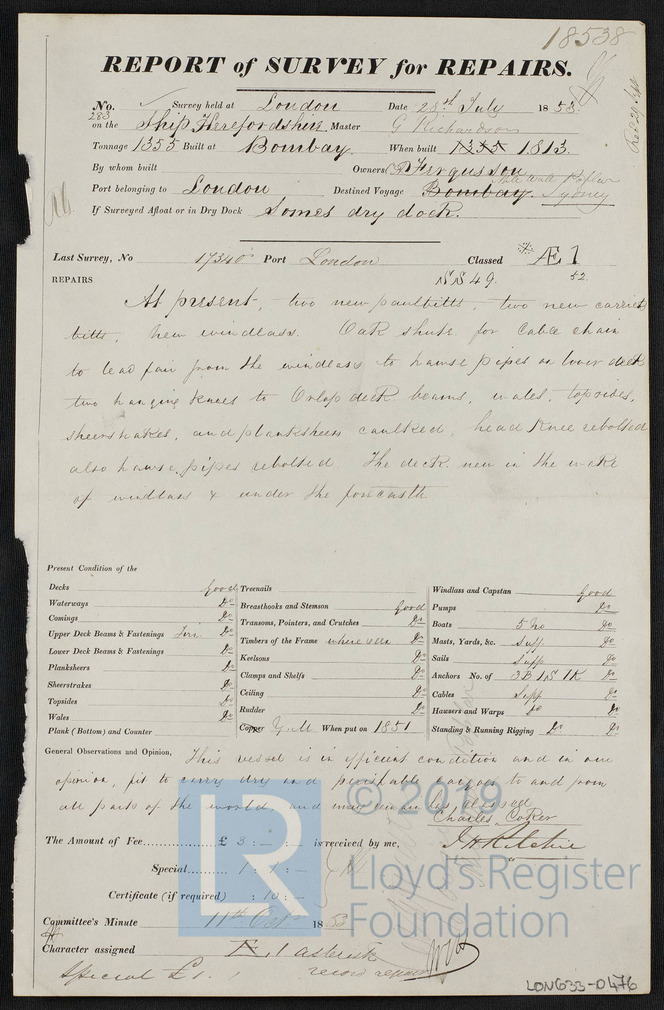 18538
REPORT of SURVEY for REPAIRS.
No. 283 Survey held at London Date 28th July 1853.
on the Ship Herefordshire Master G Richardson
Tonnage 1355 Built at Bombay. When built 1335 1813.
By whom built Owners Fergusson
Port belonging to London Destined Voyage Bombay Sydney
If Surveyed Afloat or in Dry Dock Somes dry dock.
Last Survey, No 17340 Port London Classed Æ 1
REPAIRS SS 49. 52.
At present, two new paulbitts, two new carrick
bitts, new windlass. Oak shute for Cable chain
to lead fair from the windlass to hawse pipes on lower deck
two hanging knees to Orlop deck beams, wales, topsides,
sheerstrakes, and planksheers caulked, head knee rebolted
also hawse pipes rebolted The deck new in the wake
of windlass & under the forecastle
Present Condition of the
Decks good
Waterways Do
Comings Do
Upper Deck Beams & Fastenings Fir. Do
Lower Deck Beams & Fastenings Do
Planksheers Do
Sheerstrakes Do
Topsides Do
Wales Do
Plank (Bottom) and Counter
Treenails
Breasthooks and Stemson good
Transoms, Pointers, and Crutches Do
Timbers of the Frame where seen Do
Keelsons Do
Clamps and Shelfs Do
Ceiling Do
Rudder Do
Copper Y.M When put on 1851
Windlass and Capstan good
Pumps Do
Boats 5 No Do
Masts, Yards, &c. Suff Do
Sails Suff Do
Anchors No. of 3B 1S 1K Do
Cables Suff Do
Hawsers and Warps Do Do
Standing & Running Rigging Do Do
General Observations and Opinion, This vessel is in efficient condition and in our
opinion, fit to carry dry and perishable cargoes to and from
all parts of the world, and may remain as classed
Charles Coker
The Amount of Fee £ 3 : - : - is received by me, J H Ritchie
Special 1 : 1 : -
Certificate (if required) : 10 : -
Committee's Minute 11th Oct 1853
Character assigned Æ 1 asterisk
Special £1. record repairs
LON633-0476
© 2019
LR
Lloyd's Register
Foundation